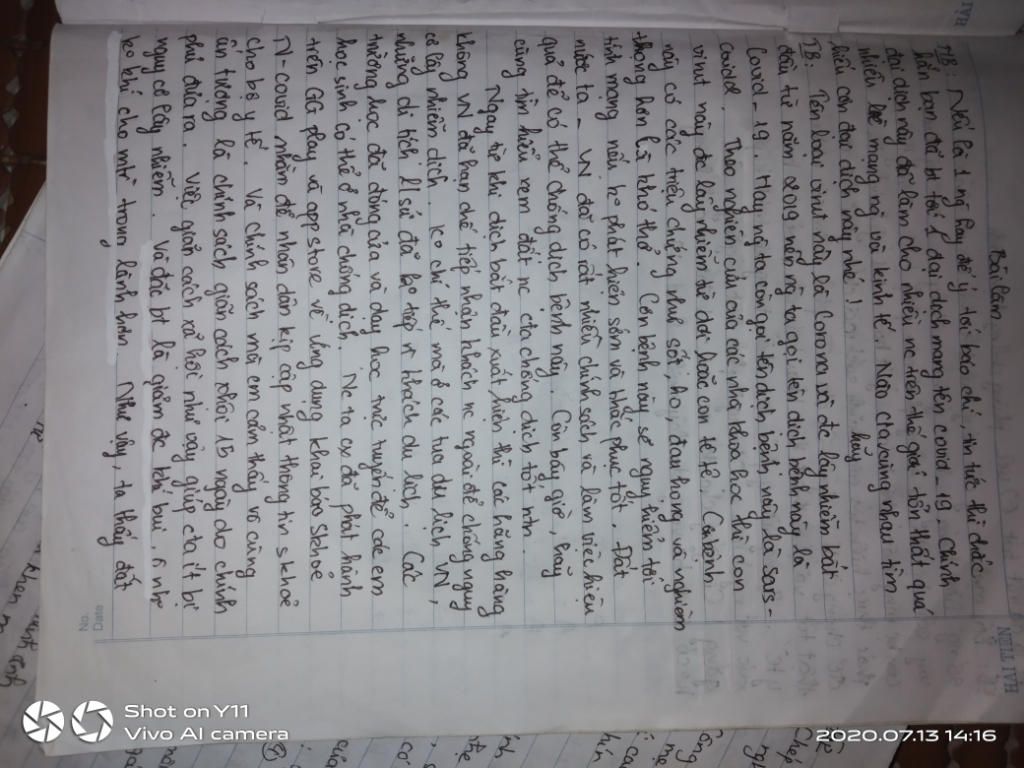 Bài làm
MB: Nếu là 1 ng hay để ý tới báo chí, tin tức thì chắc
hẳn bạn đã bt tới 1 đại dịch mang tên covid-19. Chính
đại dịch này đã làm cho nhiều nc trên thế giới tổn thất quá
nhiều về mạng ng và kinh tế. Nào cta cùng nhau tìm
hiểu còn đại dịch này nhé! hãy
TB: Tên loại virut này là Corona và đc lây nhiễm bắt
đầu từ năm 2019 nên ng ta gọi tên dịch bệnh này là
Covid-19. Hay ng ta còn gọi tên dịch bệnh này là sars-
covid2. Theo nghiên cứu của các nhà khoa học thì con
virut này đc lây nhiễm từ dơi hoặc con tê tê. Căn bệnh
này có các triệu chứng như sốt, ho, đau họng và nghiêm
trọng hơn là khó thở. Căn bệnh này sẽ nguy hiểm tới
tính mạng nếu ko phát hiện sớm và khắc phục tốt. Đất
nước ta - VN đã có rất nhiều chính sách và làm việc hiệu
quả để có thể chống dịch bệnh này. Còn bây giờ, hãy
cùng tìm hiểu xem đất nc cta chống dịch tốt ntn.
Ngay từ khi dịch bắt đầu xuất hiện thì các hãng hàng
không VN đã hạn chế tiếp nhận khách nc ngoài để chống nguy
cơ lây nhiễm dịch. Ko chỉ thế mà ở các tua du lịch VN,
những di tích l/sử đã ko tiếp n khách du lịch. Các
trường học đã đóng cửa và dạy học trực tuyến để các em
học sinh có thể ở nhà chống dịch. Nc ta cx đã phát hành
trên GG play và app store về ứng dụng khai báo Skhoẻ
N-covid nhằm để nhân dân kịp cập nhật thông tin s khoẻ
cho bộ y tế. Và chính sách mà em cảm thấy vô cùng
ấn tượng là chính sách giãn cách xhội 15 ngày do chính
phủ đưa ra. Việc giãn cách xã hội như vậy giúp cta ít bị
nguy cơ lây nhiễm. Và đặc bt là giảm đc khói bụi, ô nh
ko khí cho mtr trong lành hơn. Như vậy, ta thấy đất
No.
Date
HẢI TIẾN
HẢI
Shot on Y11
Vivo AI camera
2020.07.13 14:16